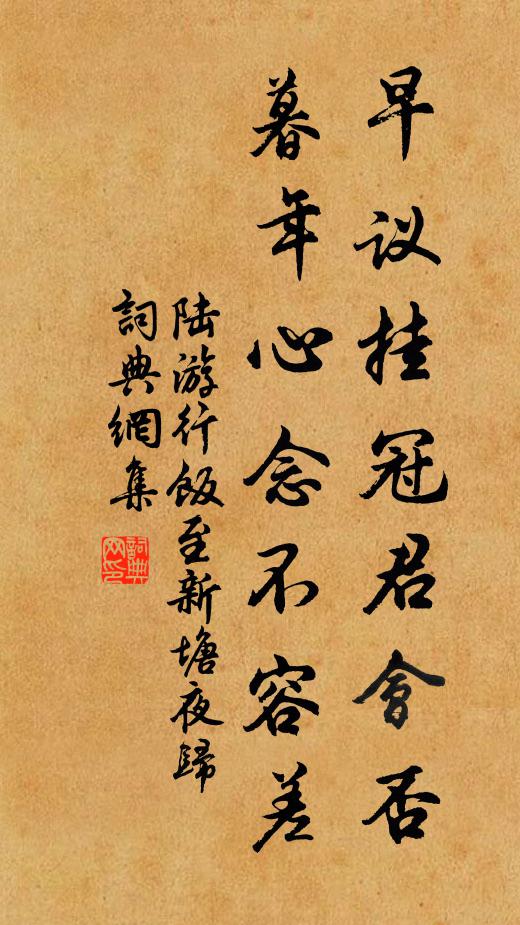 早议挂冠君會否
暮年心念不容差
陆游行饭至新塘夜歸
詞典網集
詞典
网印